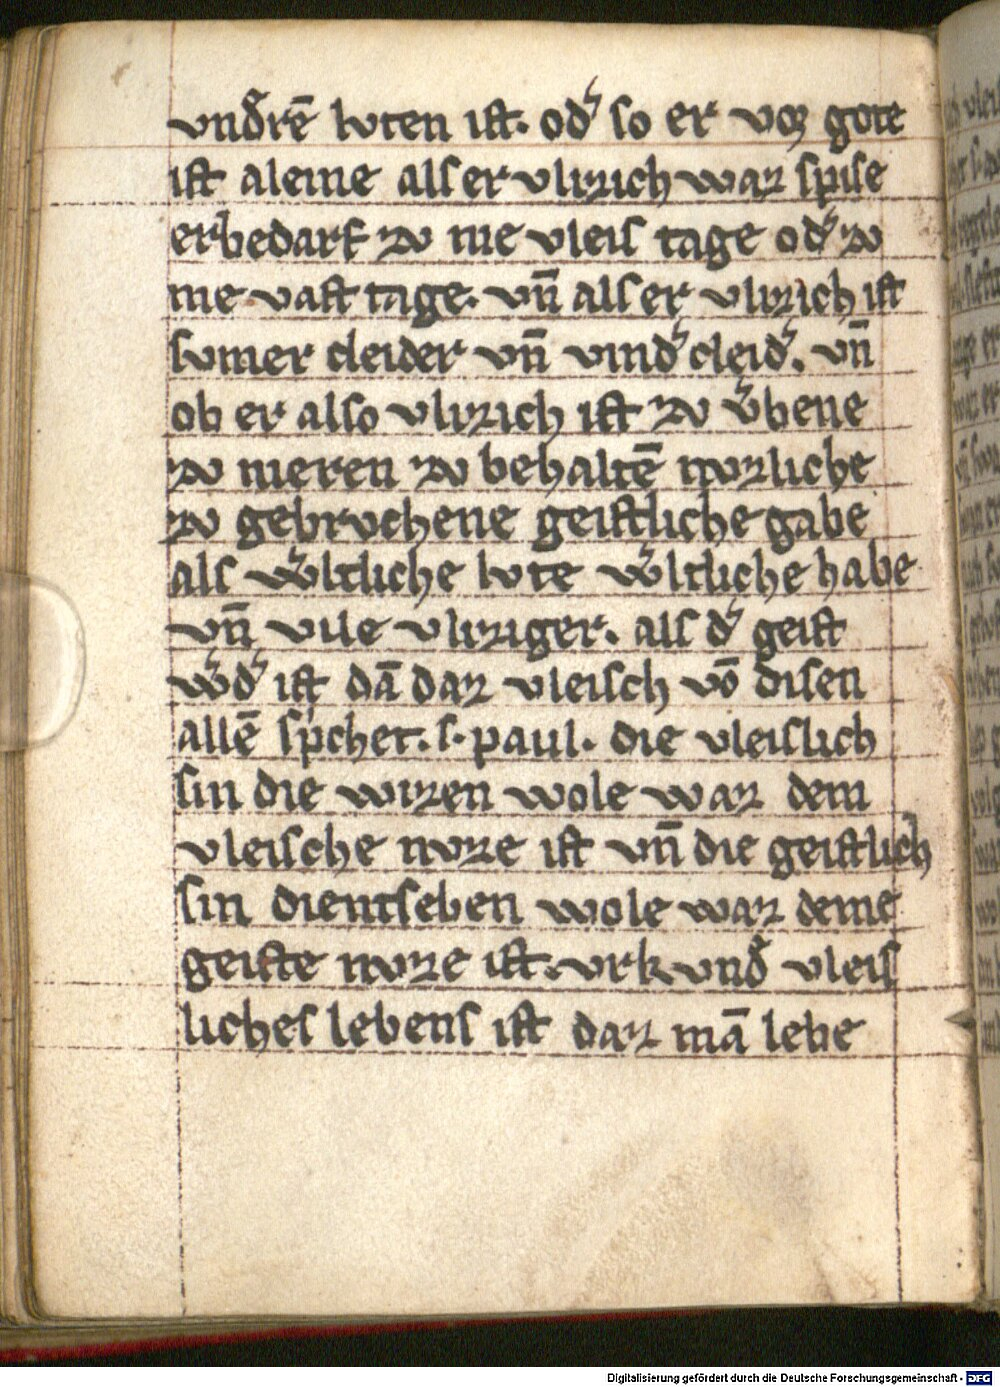 vnd̄rē lvten ist. od᷾ so er vor gote
ist aleine als er vlizich waz spise
er bedarf zv me vleis tage od᷾ zv
me vast tage. vn̄ als er vlizich ist
svmer cleider vn̄ vind᷾ cleid᷾. vn̄
ob er also vlizich ist zv v᷾bene
zv meren zv behaltē nvzliche
zv gebrvchene geistliche gabe
als w᷾ltliche lvte w᷾ltliche habe
vn̄ vile vliziger. als d᷾ geist
w᷾d᷾ ist dā daz vleisch vō disen
allē sp̍chet. s. paul. die vleislich
sin die wizen wole waz dem
vleische nvze ist vn̄ die geistlich
sin die entseben wole waz deme
geiste nvze ist. vrkvnd̄ vleis
liches lebens ist daz mā lebe
Digitalisierung gefördert durch die Deutsche Forschungsgemeinschaft - DFG